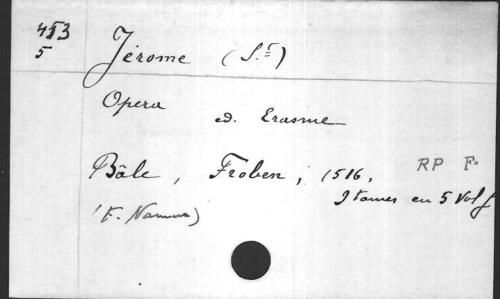 453
5
Jérome (S.t)
Opera ed. Erasme
Bâle, Froben, 1516,
RP F.
9 tomes en 5 vol f
(F. Namur)